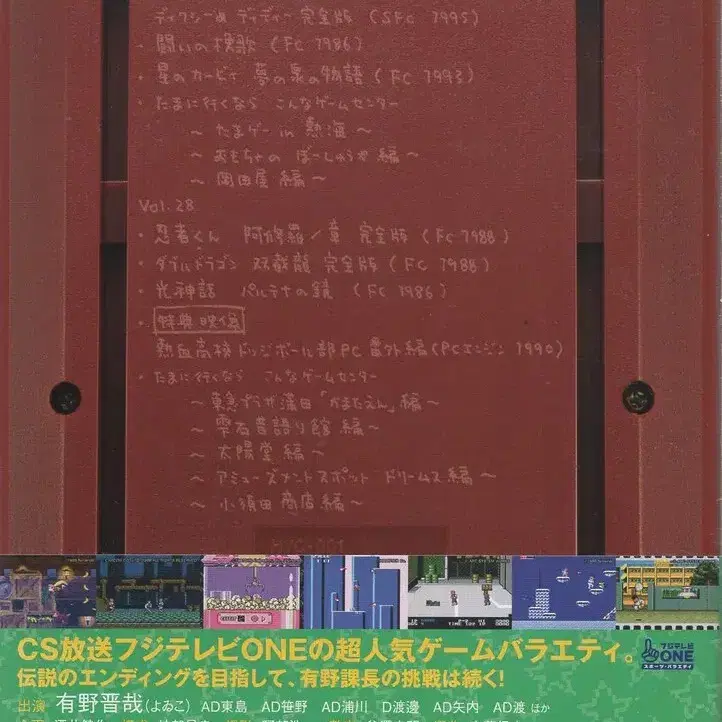 ディクシー&ディディー 完全版 (SFC 1995)
・闘いの挽歌 (FC 1986)
・星のカービィ 夢の泉の物語 (FC 1993)
・たまに行くなら こんなゲームセンター
〜たまゲー in 熱海〜
〜おもちゃの ぼーしゅうや編〜
〜岡田屋編〜
Vol.28
・忍者くん 阿修羅ノ章 完全版 (FC 1988)
・ダブルドラゴン 双截龍 完全版 (FC 1988)
・光神話 パルテナの鏡 (FC 1986)
・特典映像
熱血高校ドッジボール部PC 番外編 (PCエンジン 1990)
・たまに行くなら こんなゲームセンター
〜東急プラザ蒲田「かまたえん」編〜
〜雫石昔語り館編〜
〜太陽堂編〜
〜アミューズメントスポット ドリームス編〜
〜小須田商店編〜
CS放送フジテレビONEの超人気ゲームバラエティ。
伝説のエンディングを目指して、有野課長の挑戦は続く!
フジテレビ
ONE
スポーツ・バラエティ
出演 有野晋哉(よゐこ) AD東島 AD笹野 AD浦川 D渡邊 AD矢内 AD渡 ほか